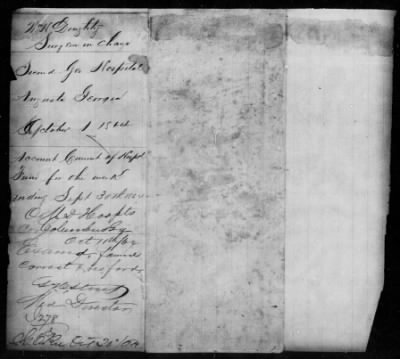 W H Doughty
Surgeon in Charge
Second Geo Hospital
Augusta Georgia
October 1 1864
Account Current of Hospl
Fund for the month
ending Sept 30th
Hospls
Columbus Ga
Oct
Examd, found
correct &
Med Director
1278
Oct